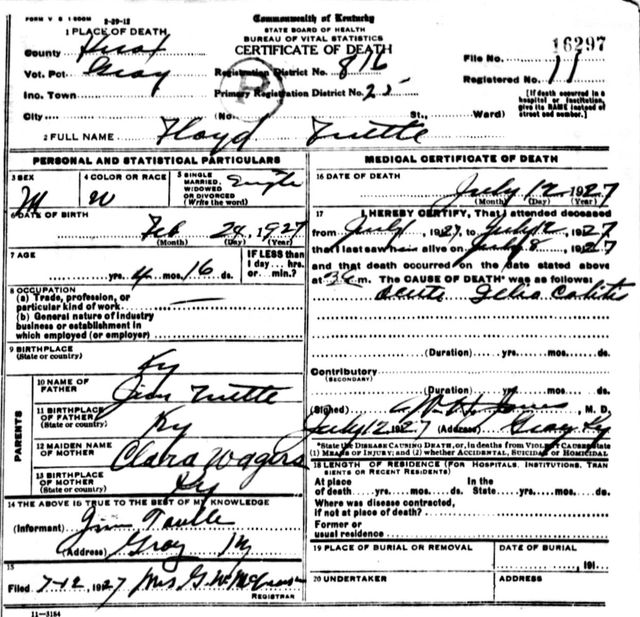 FORM V S 1 500M 2-29-12
Commonwealth of Kentucky
STATE BOARD OF HEALTH
BUREAU OF VITAL STATISTICS
CERTIFICATE OF DEATH
1 PLACE OF DEATH
County
Vot. Pct Gray
Inc. Town
City
Registration District No. 816
Primary Registration District No. 25
(No. St., Ward)
File No. 16297
Registered No. 11
[If death occurred in a
hospital or institution,
give its NAME instead of
street and number.]
2 FULL NAME Floyd Tuttle
PERSONAL AND STATISTICAL PARTICULARS
3 SEX M
4 COLOR OR RACE W
5 SINGLE
MARRIED,
WIDOWED
OR DIVORCED
(Write the word) Single
6 DATE OF BIRTH
Feb 24, 1927
(Month) (Day) (Year)
7 AGE
yrs. 4 mos. 16 ds.
IF LESS than
1 day... hrs.
or... min.?
8 OCCUPATION
(a) Trade, profession, or
particular kind of work
(b) General nature of industry
business or establishment in
which employed (or employer)
9 BIRTHPLACE
(State or country) Ky
PARENTS
10 NAME OF
FATHER Jim Tuttle
11 BIRTHPLACE OF
FATHER
(State or country) Ky
12 MAIDEN NAME
OF MOTHER Clara Wagers
13 BIRTHPLACE
OF MOTHER
(State or country) Ky
14 THE ABOVE IS TRUE TO THE BEST OF MY KNOWLEDGE
(Informant) Jim Tuttle
(Address) Gray Ky
15
Filed 7-12, 1927 Mrs G. W.
REGISTRAR
11-3184
MEDICAL CERTIFICATE OF DEATH
16 DATE OF DEATH
July 12 1927
(Month) (Day) (Year)
17 I HEREBY CERTIFY, That I attended deceased
from July, 1927, to July, 1927
that I last saw h alive on July 8, 1927
and that death occurred on the date stated above
at m. The CAUSE OF DEATH* was as follows
Acute Ileo Colitis
(Duration) yrs. mos. ds.
Contributory
(SECONDARY)
(Duration) yrs. mos. ds.
(Signed) Jones, M. D.
July 12 1927 (Address) Gray Ky
*State the DISEASE CAUSING DEATH, or, in deaths from VIOLENT CAUSES state
(1) MEANS OF INJURY; and (2) whether ACCIDENTAL, SUICIDAL or HOMICIDAL
18 LENGTH OF RESIDENCE (FOR HOSPITALS, INSTITUTIONS, TRAN
SIENTS OR RECENT RESIDENTS)
At place
of death yrs. mos. ds.
In the
State yrs. mos. ds.
Where was disease contracted,
if not at place of death?
Former or
usual residence
19 PLACE OF BURIAL OR REMOVAL
DATE OF BURIAL
191
20 UNDERTAKER
ADDRESS